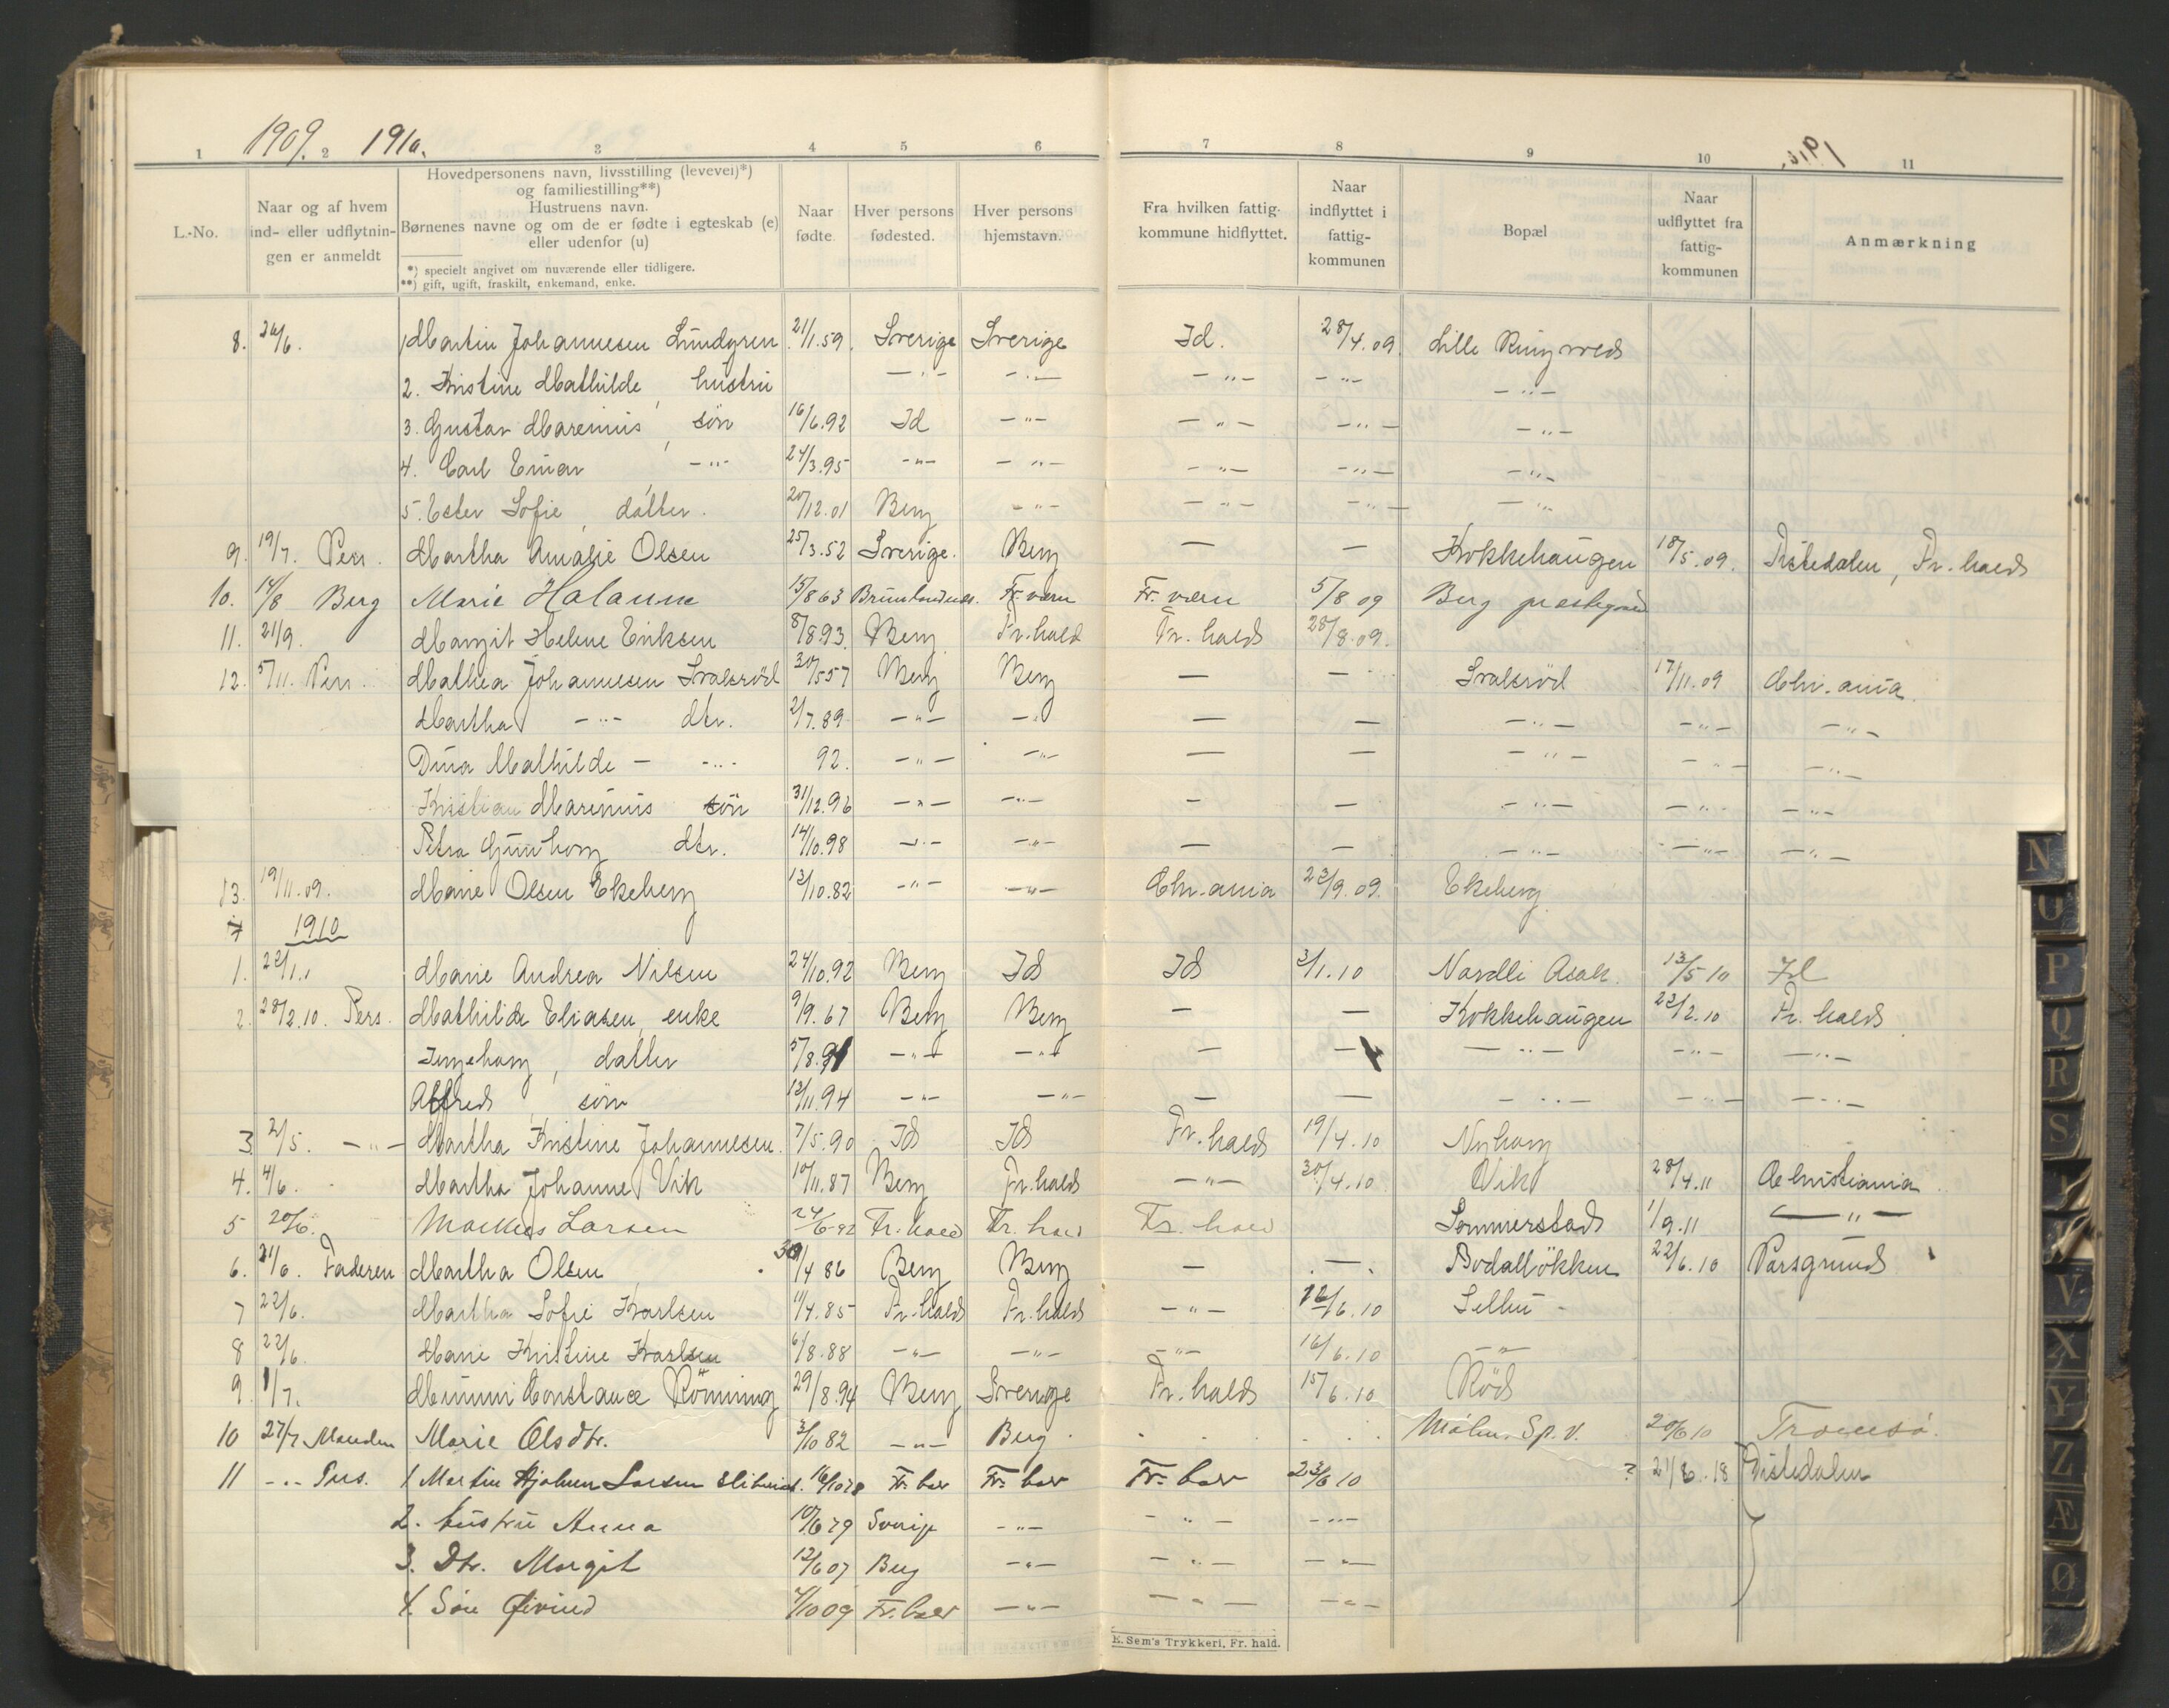 1909. 1910.
1910.
1 2 3 4 5 6 7 8 9 10 11
L.-No.
Naar og af hvem
ind- eller udflytnin-
gen er anmeldt
Hovedpersonens navn, livsstilling (levevei)*)
og familiestilling**)
Hustruens navn.
Børnenes navne og om de er fødte i egteskab (e)
eller udenfor (u)
*) specielt angivet om nuværende eller tidligere.
**) gift, ugift, fraskilt, enkemand, enke.
Naar
fødte.
Hver persons
fødested.
Hver persons
hjemstavn.
Fra hvilken fattig-
kommune hidflyttet.
Naar
indflyttet i
fattig-
kommunen
Bopæl
Naar
udflyttet fra
fattig-
kommunen
Anmærkning
8. 26/6. 1 Martin Johannesen Lundgren 21/1.59. Sverige Sverige Id. 28/4.09. Lille
2. Kristine Mathilde, hustru -"- -"- -"- -"- -"-
3. Gustav Marenius, søn 16/6.92 Id -"- -"- -"- -"-
4. Carl Einar, -"- 24/3.95 -"- -"- -"- -"- -"-
5. Ester Sofie, datter. 20/12.01 Berg -"- -"- -"- -"-
9. 19/7. Pers. Martha Amalie Olsen 25/3.52 Sverige. Berg — — Kokkehaugen 18/5.09. Tistedalen, Fr. hald
10. 14/8 Berg Marie 15/8 63 Fr. værn Fr. værn 5/8 09 Berg prestegaard
11. 21/9. Margit Helene Eriksen 8/8 93. Berg Fr. hald Fr. hald 28/8.09.
12. 5/11. Pers. Mathea Johannesen Svalerød 30/5 57 Berg Berg — — Svalerød 17/11.09 Chr.ania.
Martha -"- dtr. 2/7.89 -"- -"- — — -"- -"- -"-
Dina Mathilde - -"- 92. -"- -"- — — -"- -"- -"-
Kristian Marenius søn 31/12.96 -"- -"- — — -"- -"- -"-
Petra Gunborg dtr. 14/10.98 -"- -"- — — -"- -"- -"-
13. 19/11.09. Marie Olsen Ekeberg 13/10.82 -"- -"- Chr.ania 23/9.09. Ekeberg
1910
1. 22/1. Marie Andrea Nilsen 24/10.92 Berg Id Id 3/1.10 Nordli Asak. 13/5 10 Id
2. 28/2.10. Pers. Mathilde Eliasen, enke 9/9.67 Berg Berg — — Kokkehaugen 22/2.10 Fr. hald
Ingeborg, datter 5/8.91 -"- -"- — — -"- -"- -"-
Alfred, søn 12/11.94 -"- -"- — — -"- -"- -"-
3. 2/5. -"- Martha Kristine Johannesen. 7/5.90 Id Id Fr. hald 19/4.10 Nyborg
4. 4/6. Martha Johanne Vik 10/11.87 Berg Fr. hald -"- 30/4.10 Vik 28/4.11 Christiania
5 20/6. Larsen 24/6-92 Fr. hald Fr. hald Fr. hald Sommerstad 1/9.11 -"-
6. 21/6. Faderen Martha Olsen 30/4 86 Berg Berg — — Bodalløkken 22/6.10 Porsgrund
7 22/6. Martha Sofie Karlsen 11/4.85 Fr. hald Fr. hald -"- 16/6.10
8 22/6. Marie Kristine Karlsen 6/8.88 -"- -"- -"- 16/6.10 -"-
9. 1/7. Minni Constance Rönning 29/8.94 Berg Sverige Fr. hald 15/6.10 Rød
10 27/7 Manden Marie Olsdtr. 3/10 82 -"- Berg Sp.V. 20/6 10 Tromsø.
11 -"- Pers. 1 Martin Hjalmar Larsen 16/10 78 Fr. hald Fr. hald Fr. hald 23/6 10 ? 21/6.18 Tistedalen
2. hustru Anna 10/6 79 Sverige -"- -"- -"-
3. Dtr. Margit 12/6 07 Berg -"- -"- -"-
4. Søn Øivind 4/10 09 Fr. hald -"- -"- -"-
E. Sem's Trykkeri, Fr. hald.
N
G
P
Q
R
S
V
X
Y
Z
Æ
Ø